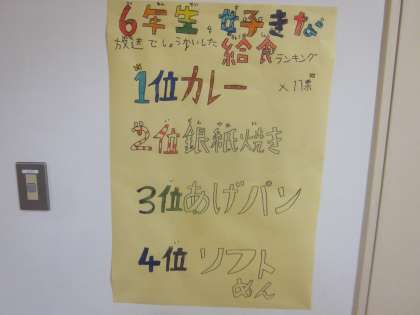 6年生の好きな
放送でしょうかいした
給食ランキング
1位カレー
2位銀紙焼き
3位あげパン
4位ソフト
めん